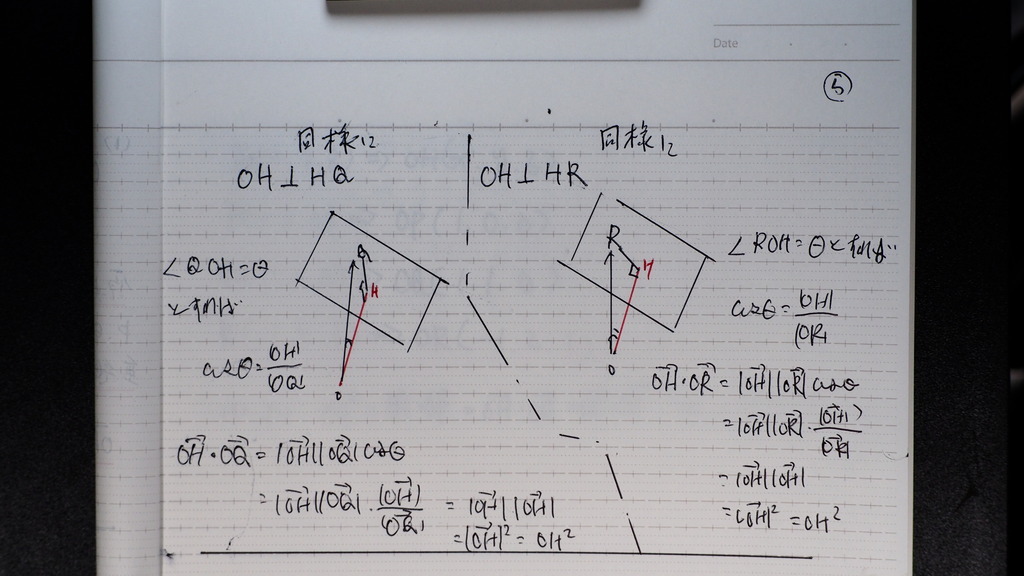 Date
⑤
同様に
OH⊥HQ
∠QOH=θ
とすれば
Q
H
O
cosθ=|OH|/|OQ|
OH→・OQ→=|OH→||OQ→|cosθ
=|OH→||OQ→|・|OH→|/|OQ→|
=|OH→||OH→|
=|OH→|²=OH²
同様に
OH⊥HR
∠ROH=θとすれば
R
H
O
cosθ=|OH|/|OR|
OH→・OR→=|OH→||OR→|cosθ
=|OH→||OR→|・|OH→|/|OR→|
=|OH→||OH→|
=|OH→|²=OH²